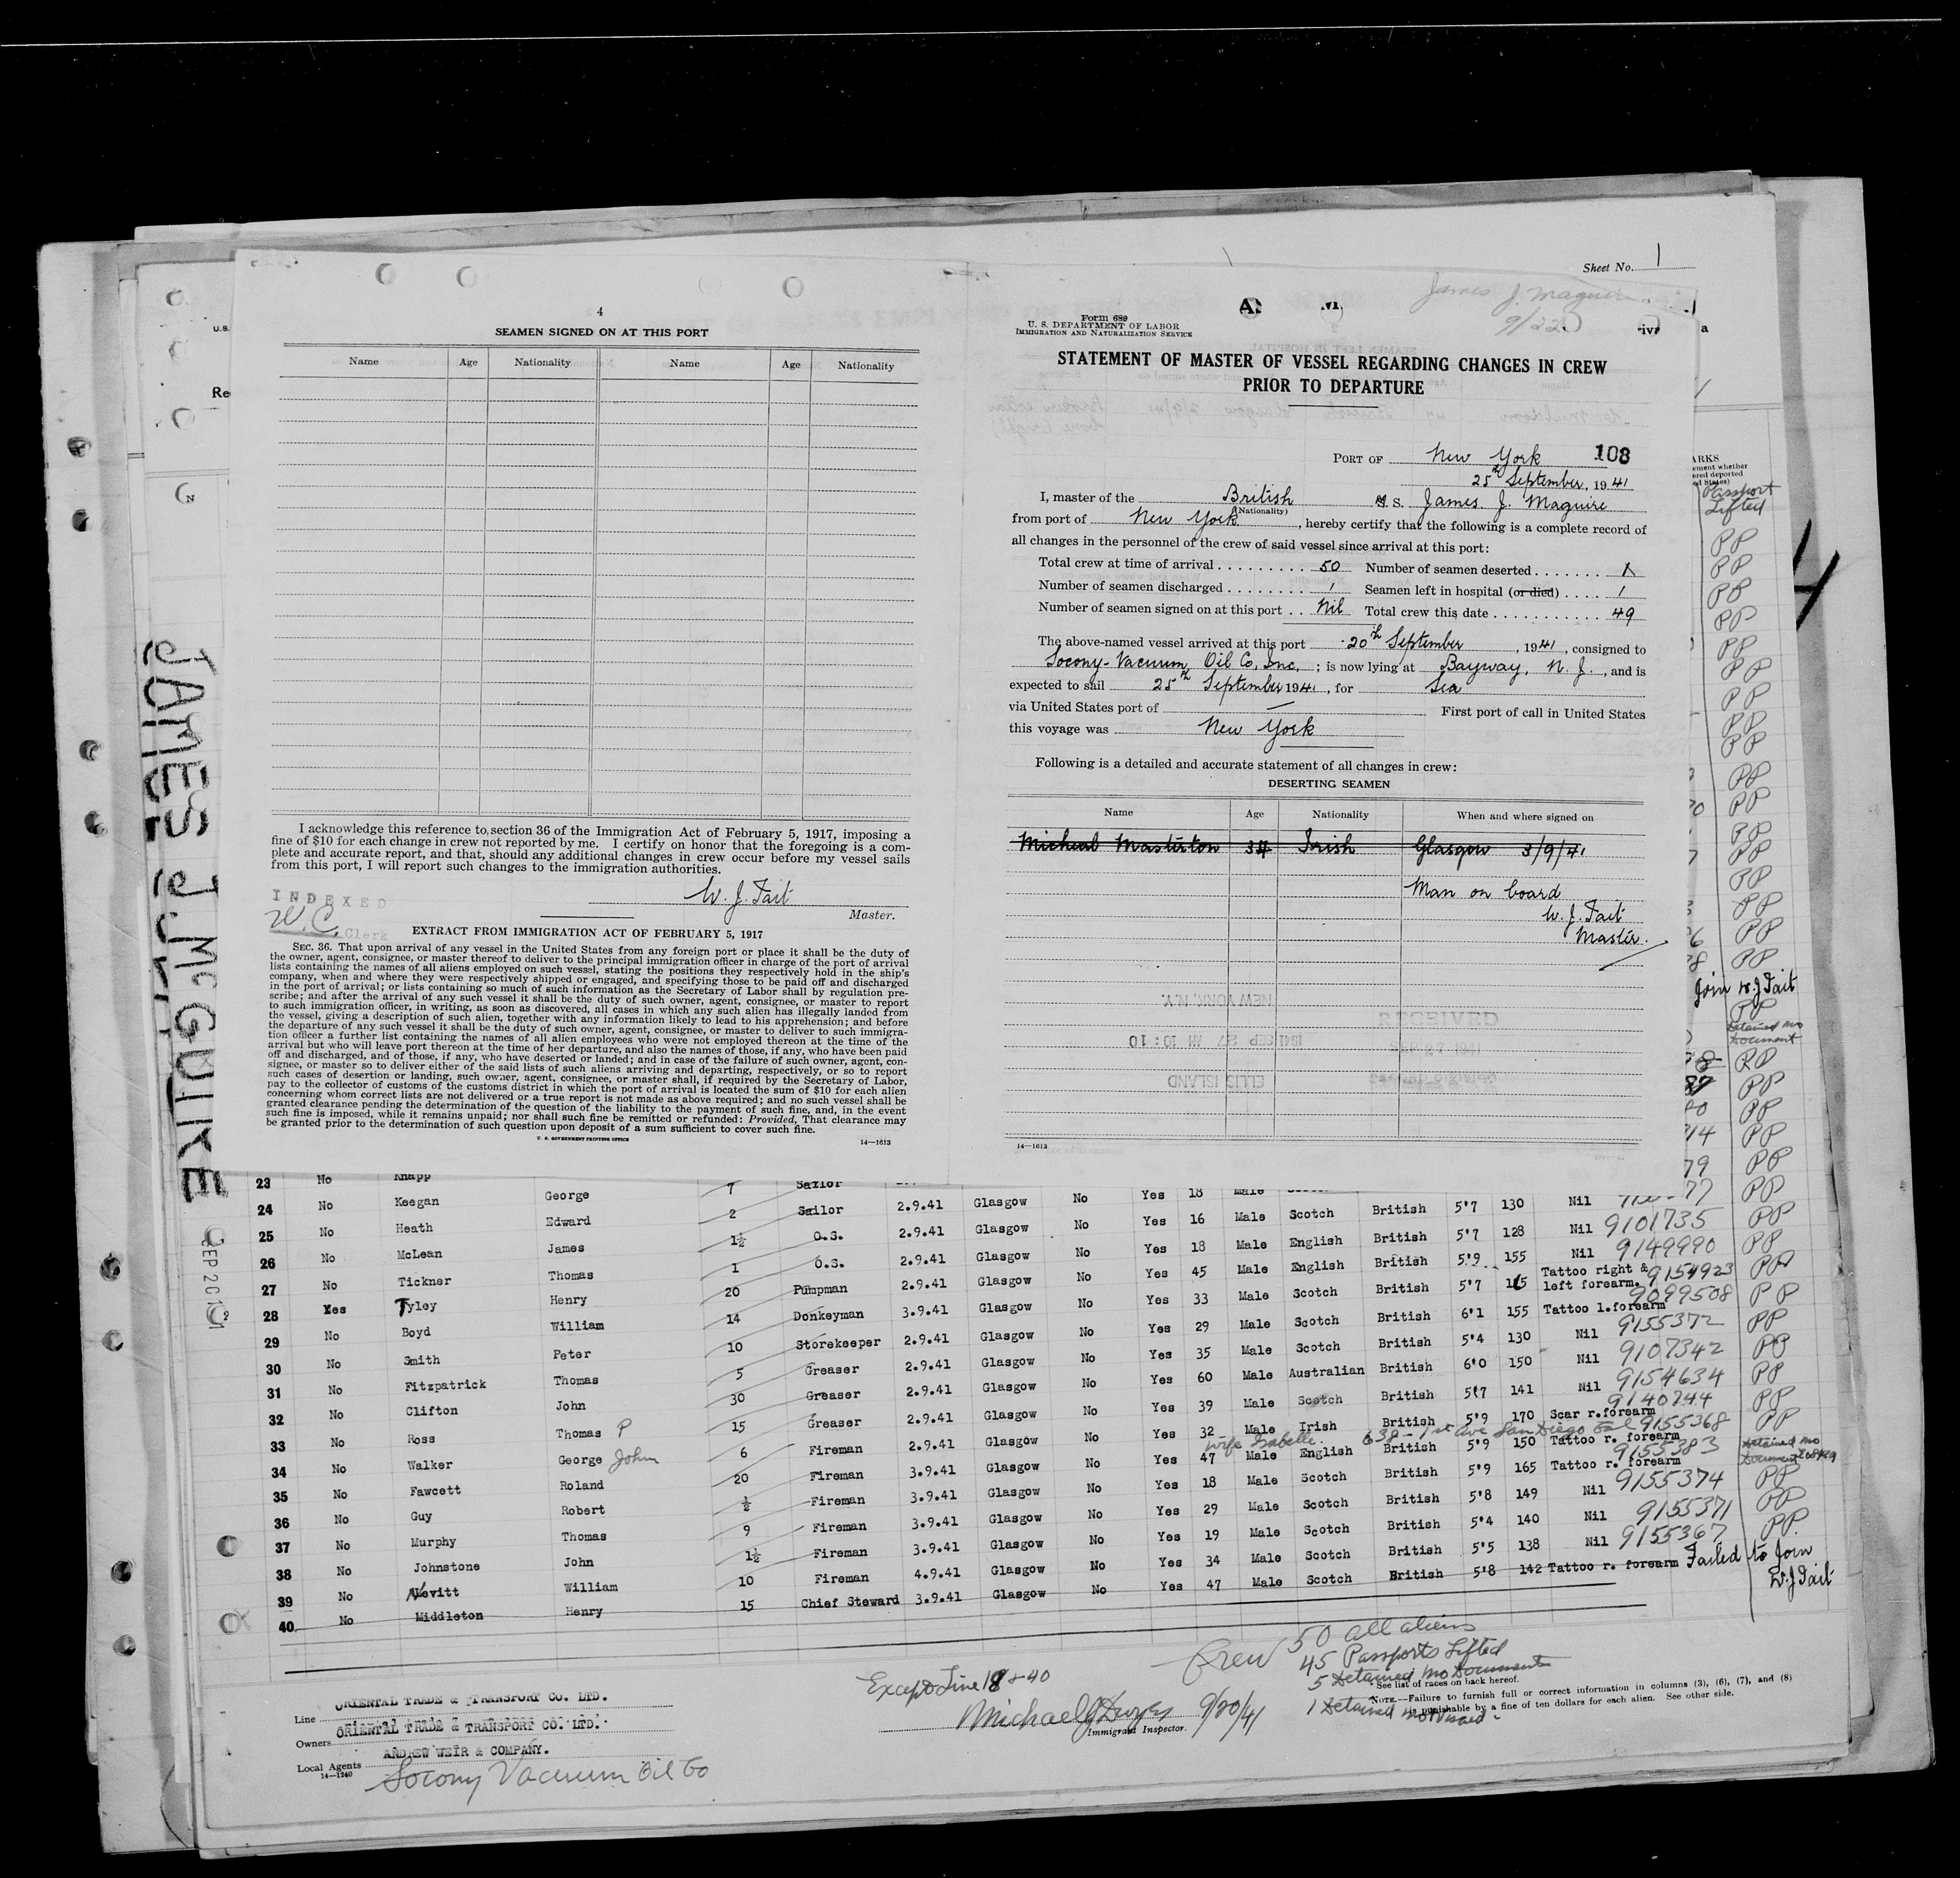 Sheet No. 1
James J. Maguire
9/22
4
SEAMEN SIGNED ON AT THIS PORT
Name Age Nationality Name Age Nationality
I acknowledge this reference to section 36 of the Immigration Act of February 5, 1917, imposing a
fine of $10 for each change in crew not reported by me. I certify on honor that the foregoing is a com-
plete and accurate report, and that, should any additional changes in crew occur before my vessel sails
from this port, I will report such changes to the immigration authorities.
W. J. Tait
Master.
INDEXED
W. C. Clerk
EXTRACT FROM IMMIGRATION ACT OF FEBRUARY 5, 1917
SEC. 36. That upon arrival of any vessel in the United States from any foreign port or place it shall be the duty of
the owner, agent, consignee, or master thereof to deliver to the principal immigration officer in charge of the port of arrival
lists containing the names of all aliens employed on such vessel, stating the positions they respectively hold in the ship's
company, when and where they were respectively shipped or engaged, and specifying those to be paid off and discharged
in the port of arrival; or lists containing so much of such information as the Secretary of Labor shall by regulation pre-
scribe; and after the arrival of any such vessel it shall be the duty of such owner, agent, consignee, or master to report
to such immigration officer, in writing, as soon as discovered, all cases in which any such alien has illegally landed from
the vessel, giving a description of such alien, together with any information likely to lead to his apprehension; and before
the departure of any such vessel it shall be the duty of such owner, agent, consignee, or master to deliver to such immigra-
tion officer a further list containing the names of all alien employees who were not employed thereon at the time of the
arrival but who will leave port thereon at the time of her departure, and also the names of those, if any, who have been paid
off and discharged, and of those, if any, who have deserted or landed; and in case of the failure of such owner, agent, con-
signee, or master so to deliver either of the said lists of such aliens arriving and departing, respectively, or so to report
such cases of desertion or landing, such owner, agent, consignee, or master shall, if required by the Secretary of Labor,
pay to the collector of customs of the customs district in which the port of arrival is located the sum of $10 for each alien
concerning whom correct lists are not delivered or a true report is not made as above required; and no such vessel shall be
granted clearance pending the determination of the question of the liability to the payment of such fine, and, in the event
such fine is imposed, while it remains unpaid; nor shall such fine be remitted or refunded: Provided, That clearance may
be granted prior to the determination of such question upon deposit of a sum sufficient to cover such fine.
U. S. GOVERNMENT PRINTING OFFICE 14—1613
Form 689
U. S. DEPARTMENT OF LABOR
IMMIGRATION AND NATURALIZATION SERVICE
STATEMENT OF MASTER OF VESSEL REGARDING CHANGES IN CREW
PRIOR TO DEPARTURE
PORT OF New York 108
25th September, 1941
I, master of the British M. S. James. J. Maguire
(Nationality)
from port of New York, hereby certify that the following is a complete record of
all changes in the personnel of the crew of said vessel since arrival at this port:
Total crew at time of arrival 50 Number of seamen deserted 1
Number of seamen discharged 1 Seamen left in hospital (or died) 1
Number of seamen signed on at this port Nil Total crew this date 49
The above-named vessel arrived at this port 20th September, 1941, consigned to
Socony-Vacuum Oil Co, Inc, ; is now lying at Bayway, N. J., and is
expected to sail 25th September 1941, for Sea
via United States port of — First port of call in United States
this voyage was New York
Following is a detailed and accurate statement of all changes in crew:
DESERTING SEAMEN
Name Age Nationality When and where signed on
Micheal Masterton 34 Irish Glasgow 3/9/41
Man on board
W. J. Tait
Master.
RECEIVED
NEW YORK, N.Y.
1941 SEP 27 AM 10:10
ELLIS ISLAND
14—1613
JAMES J. McGUIRE
ARKS
Passport
Lifted
PP
Join W. J Tait
Detained no
Document
23 No Knapp George 7 Sailor
24 No Keegan Edward 2 Sailor 2.9.41 Glasgow No Yes 18 Male
25 No Heath James 1½ O.S. 2.9.41 Glasgow No Yes 16 Male Scotch British 5'7 130 Nil PP
26 No McLean Thomas 1 O.S. 2.9.41 Glasgow No Yes 18 Male English British 5'7 128 Nil 9101735 PP
27 No Tickner Henry 20 Pumpman 2.9.41 Glasgow No Yes 45 Male English British 5'9 155 Nil 9149990 PP
28 Yes Tyley William 14 Donkeyman 3.9.41 Glasgow No Yes 33 Male Scotch British 5'7 Tattoo right & left forearm. 9154923 PP
29 No Boyd Peter 10 Storekeeper 2.9.41 Glasgow No Yes 29 Male Scotch British 6'1 155 Tattoo l.forearm 9099508 PP
30 No Smith Thomas 5 Greaser 2.9.41 Glasgow No Yes 35 Male Scotch British 5'4 130 Nil 9155372 PP
31 No Fitzpatrick John 30 Greaser 2.9.41 Glasgow No Yes 60 Male Australian British 6'0 150 Nil 9107342 PP
32 No Clifton Thomas P 15 Greaser 2.9.41 Glasgow No Yes 39 Male Scotch British 5'7 141 Nil 9154634 PP
33 No Ross George John 6 Fireman 2.9.41 Glasgow No Yes 32 Male Irish British 5'9 170 Scar r.forearm 9140744 PP
wife Isabelle. 638 - 1st Ave San Diego Cal
34 No Walker Roland 20 Fireman 3.9.41 Glasgow No Yes 47 Male English British 5'9 150 Tattoo r. forearm 9155368 PP
35 No Fawcett Robert ½ Fireman 3.9.41 Glasgow No Yes 18 Male Scotch British 5'9 165 Tattoo r. forearm 9155383 Detained no Document
36 No Guy Thomas 9 Fireman 3.9.41 Glasgow No Yes 29 Male Scotch British 5'8 149 Nil 9155374 PP
37 No Murphy John 1½ Fireman 3.9.41 Glasgow No Yes 19 Male Scotch British 5'4 140 Nil 9155371 PP
38 No Johnstone William 10 Fireman 4.9.41 Glasgow No Yes 34 Male Scotch British 5'5 138 Nil 9155367 PP
39 No Nevitt Henry 15 Chief Steward 3.9.41 Glasgow No Yes 47 Male Scotch British 5'8 142 Tattoo r. forearm Failed to Join
40 No Middleton W. J Tait
Crew 50 all aliens
45 Passports Lifted
5 Detained no Documents
1 Detained not Visaed
Except Line 18 & 40
Michael J Dwyer 9/20/41
Immigrant Inspector.
See list of races on back hereof.
NOTE.—Failure to furnish full or correct information in columns (3), (6), (7), and (8)
is punishable by a fine of ten dollars for each alien. See other side.
Line ORIENTAL TRADE & TRANSPORT CO. LTD.
Owners ORIENTAL TRADE & TRANSPORT CO. LTD.
Local Agents ANDREW WEIR & COMPANY.
14—1240
Socony Vacuum Oil Co